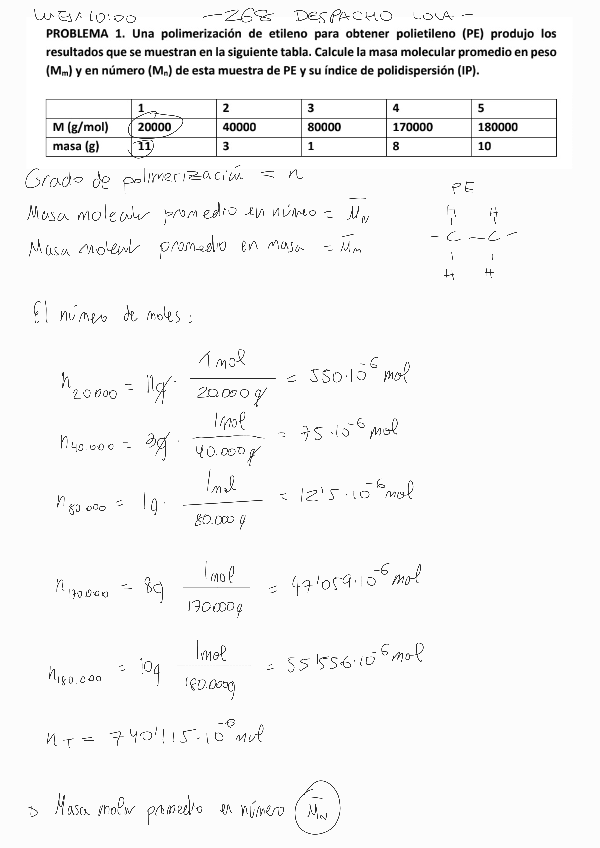 10:00 - 268 DESPACHO LOLA -
PROBLEMA 1. Una polimerización de etileno para obtener polietileno (PE) produjo los
resultados que se muestran en la siguiente tabla. Calcule la masa molecular promedio en peso
(Mₘ) y en número (Mₙ) de esta muestra de PE y su índice de polidispersión (IP).
1 2 3 4 5
M (g/mol) 20000 40000 80000 170000 180000
masa (g) 11 3 1 8 10
Grado de polimerización = n
PE
Masa molecular promedio en número = M̄N
H H
Masa molecular promedio en masa = M̄m
- C - C -
H H
El número de moles:
n20000 = 11g · 1 mol / 20.000 g = 550·10⁻⁶ mol
n40.000 = 3g · 1mol / 40.000 g = 75·10⁻⁶ mol
n80.000 = 1g · 1mol / 80.000 g = 12'5·10⁻⁶ mol
n170.000 = 8g 1mol / 170.000g = 47'059·10⁻⁶ mol
n180.000 = 10g 1mol / 180.000g = 55'556·10⁻⁶ mol
nT = 740'115·10⁻⁶ mol
> Masa molar promedio en número M̄N